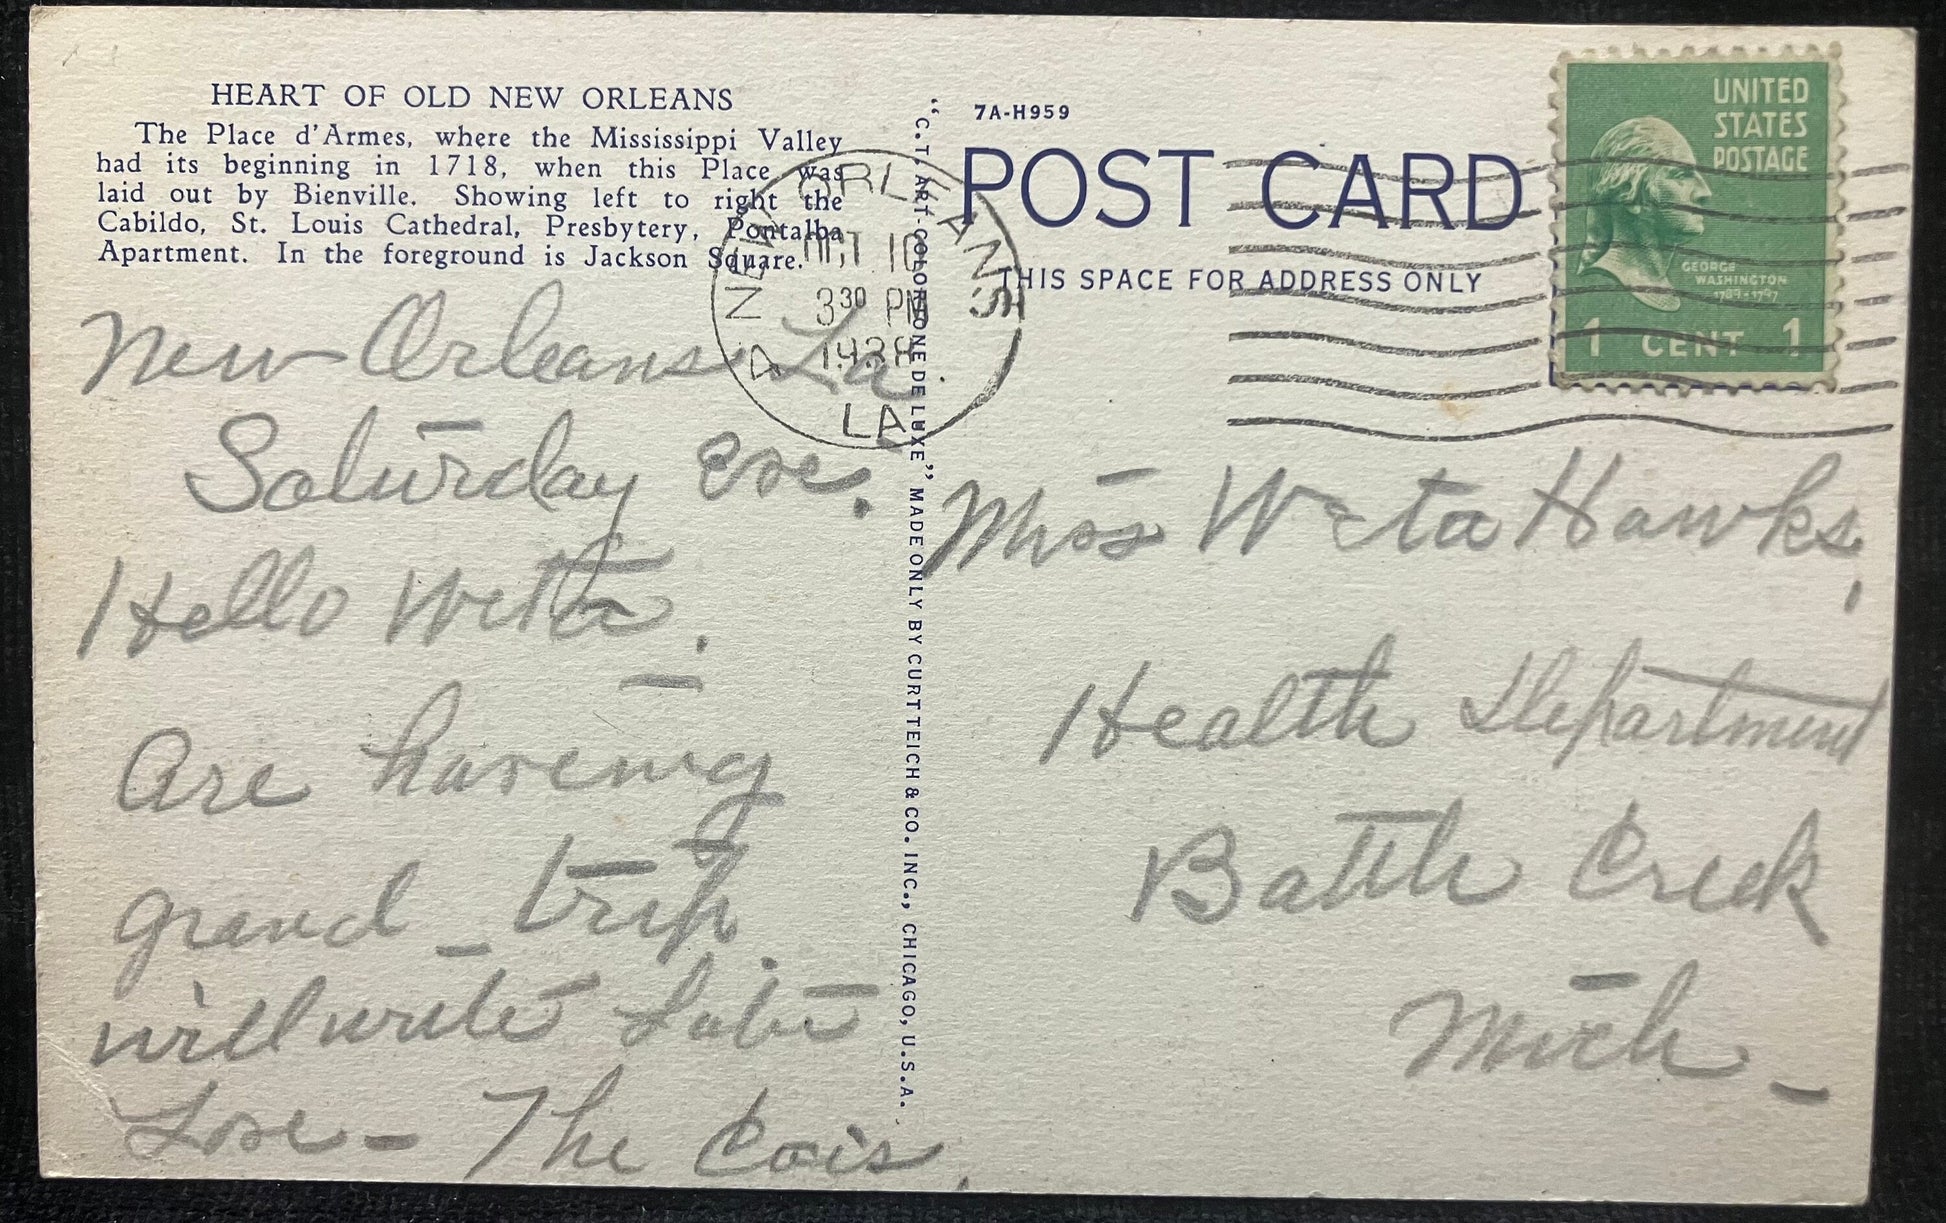 HEART OF OLD NEW ORLEANS
The Place d'Armes, where the Mississippi Valley
had its beginning in 1718, when this Place was
laid out by Bienville. Showing left to right the
Cabildo, St. Louis Cathedral, Presbytery, Pontalba
Apartment. In the foreground is Jackson Square.
New Orleans La
Saturday Eve.
Hello Weta.
Are having
grand trip.
will write Later
Love - The Cois
"C.T. ART-COLORTONE DE LUXE" MADE ONLY BY CURT TEICH & CO. INC., CHICAGO, U.S.A.
7A-H959
POST CARD
THIS SPACE FOR ADDRESS ONLY
NEW ORLEANS
OCT 10
3 30 PM
1938
LA
UNITED
STATES
POSTAGE
GEORGE
WASHINGTON
1789-1797
1 CENT 1
Miss Weta Hawks,
Health Department
Battle Creek
Mich -